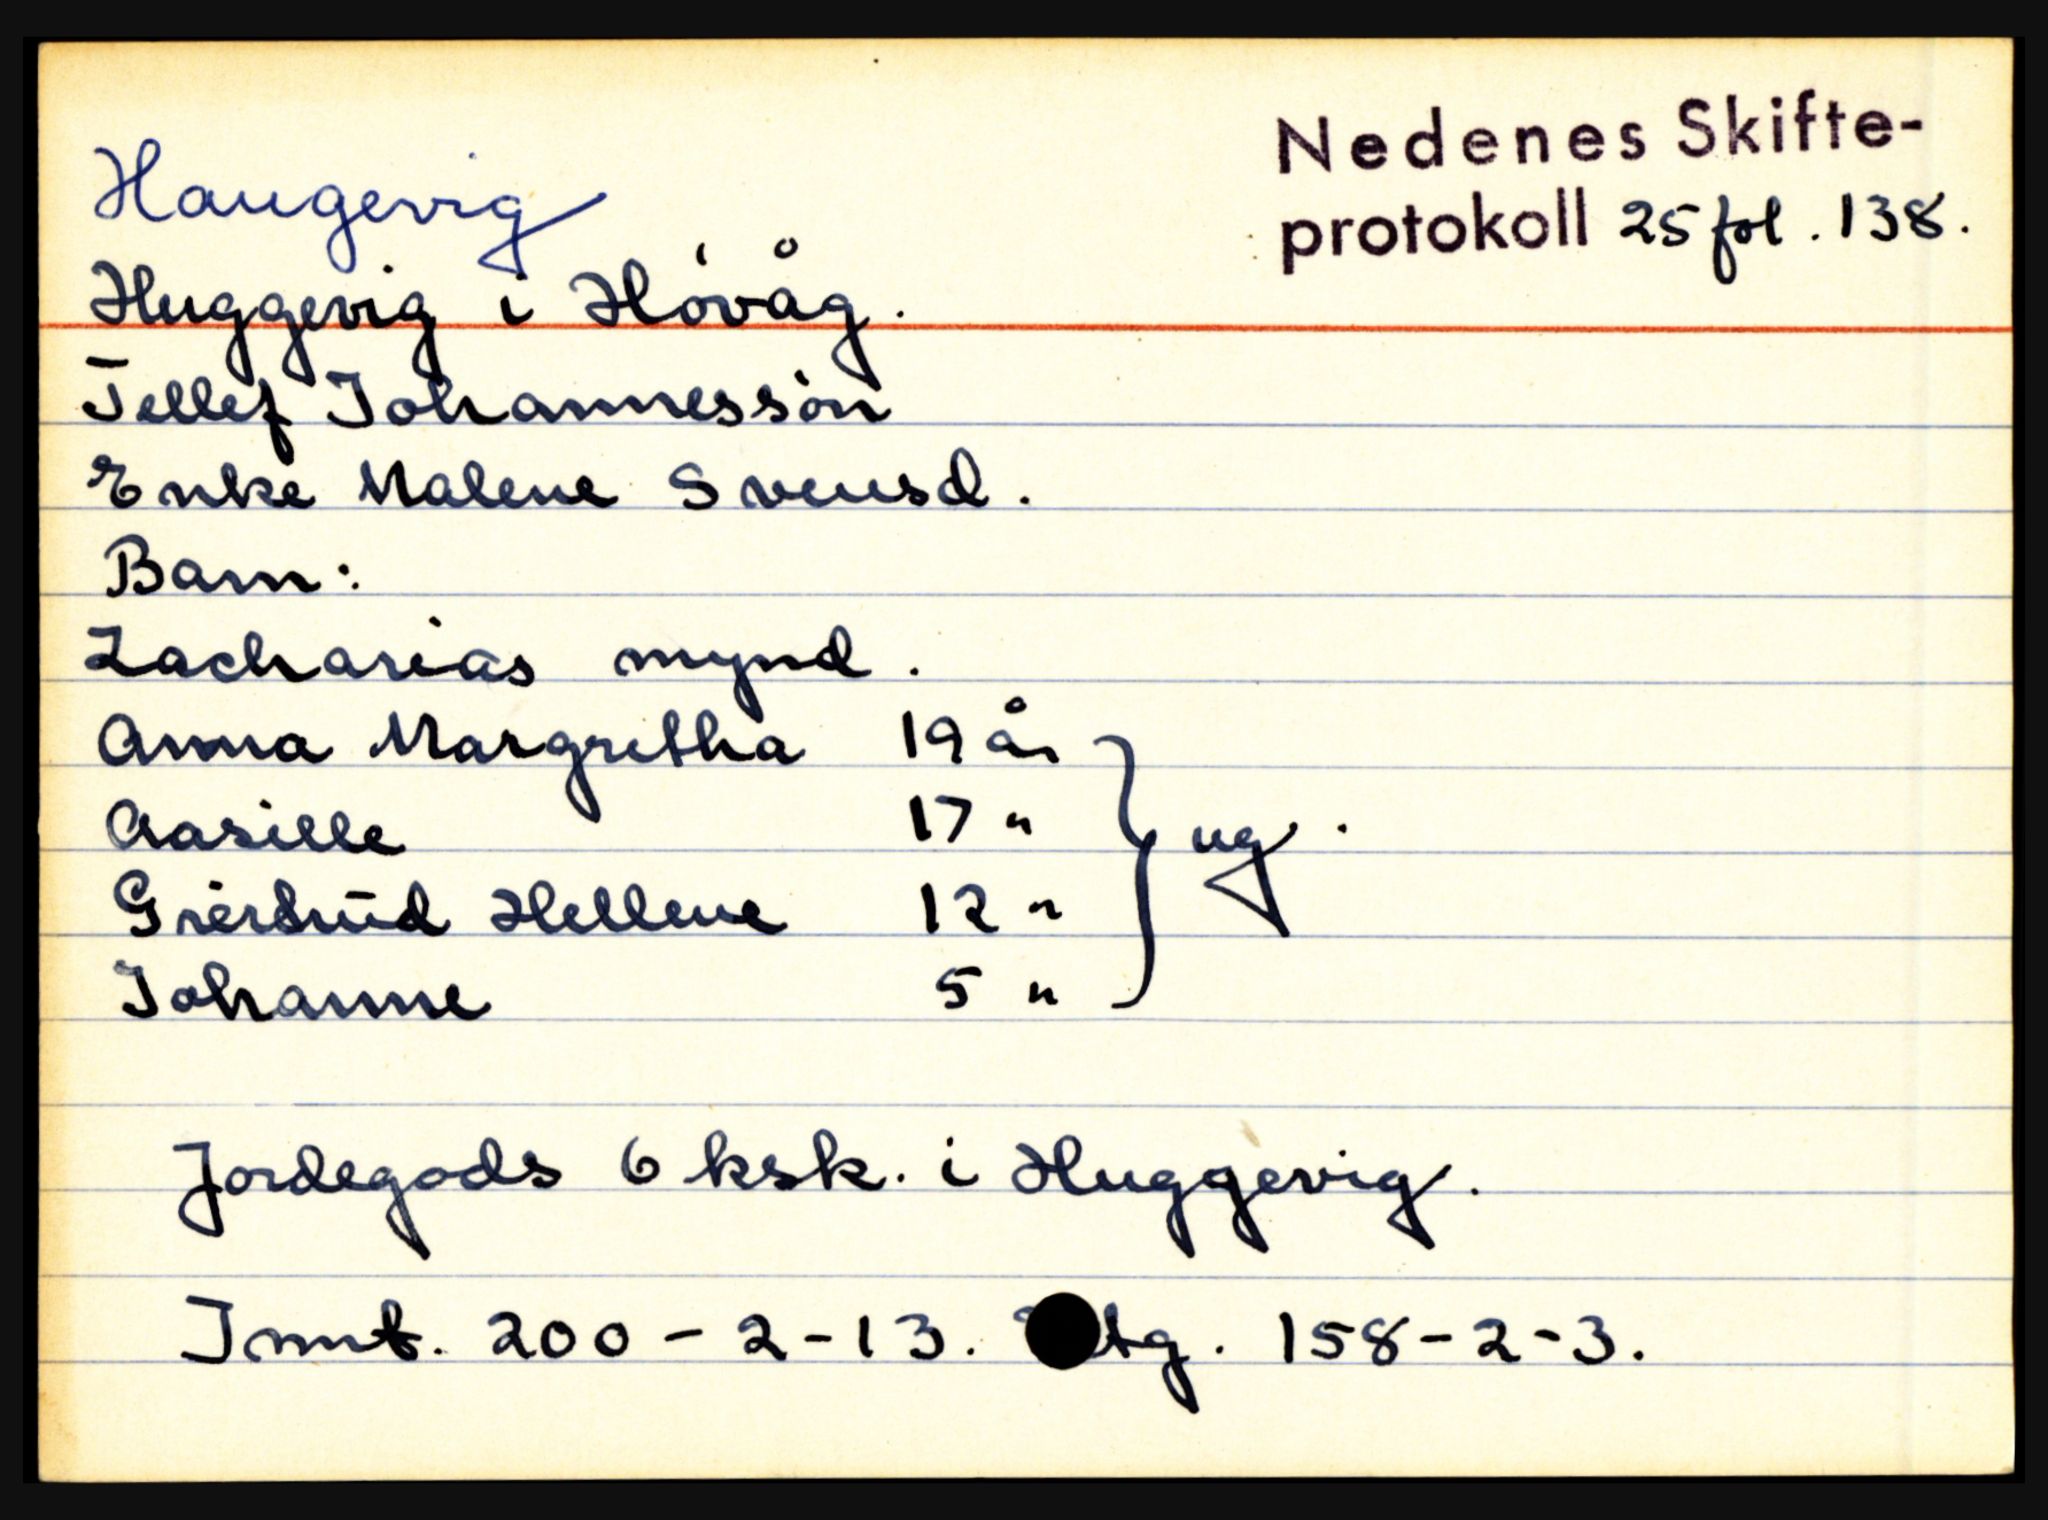 Nedenes Skifte-
protokoll 25 fol. 138.
Haugevig
Huggevig i Hóvåg.
Tellef Johannessón
Enke Malene Svensd.
Barn:
Zacharias mynd.
Anna Margretha 19 år
Aasille 17 "
Giertrud Hellene 12 "
Johanne 5 "
ug.
Jordegods 6 ksk. i Huggevig.
Innt. 200-2-13. tg. 158-2-3.